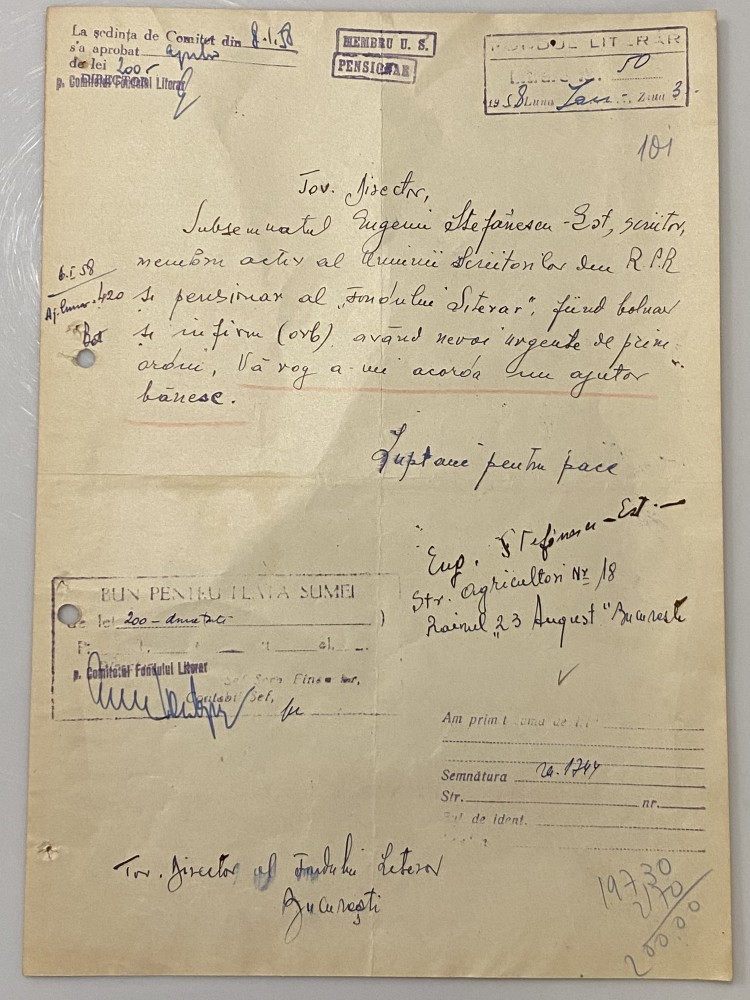 La ședința de Comitet din 8.I.58
s'a aprobat ajutor
de lei 200-
DIRECTOR
p. Comitetul Fondului Literar
MEMBRU U. S.
PENSIONAR
FONDUL LITERAR
50
1958 Luna Ian Ziua 3
101
Tov. Director,
Subsemnatul Eugeniu Ștefănescu-Est, scriitor,
membru activ al Uniunii Scriitorilor din R.P.R
și pensionar al „Fondului Literar", fiind bolnav
și infirm (orb), având nevoi urgente de prim
ordin, Vă rog a-mi acorda un ajutor
bănesc.
6.I.58
Aj. lunar 420
Luptăm pentru pace
Eug. Ștefănescu-Est
Str. Agricultori Nr 18
Raionul „23 August" București
BUN PENTRU PLATA SUMEI
de lei 200 - douăsute
p. Comitetul Fondului Literar
Contabil Șef,
Am primit suma de lei
Semnătura 1744
Str. nr.
de ident.
Tov. Director al Fondului Literar
București
197.30
2.70
200.00